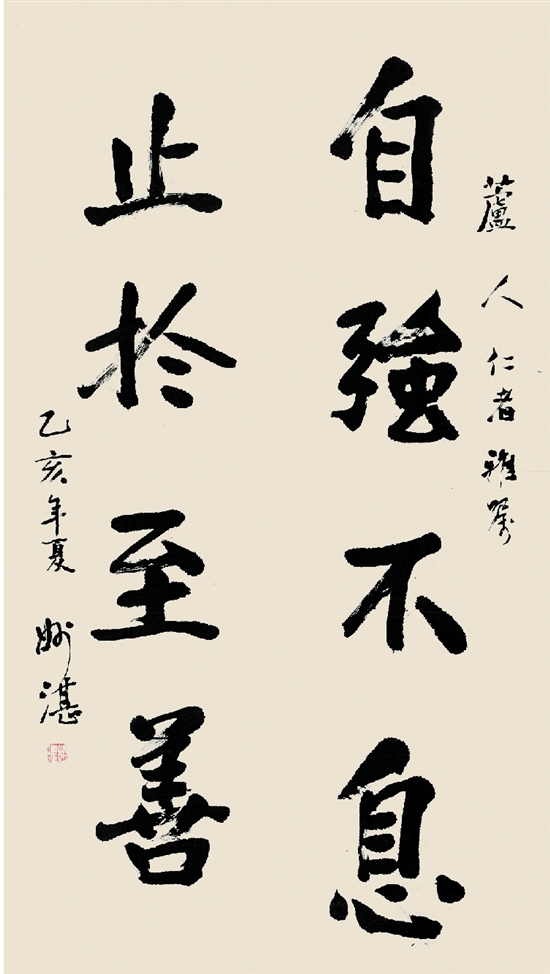 蘆人仁者雅嘱
自強不息
止於至善
乙亥年夏 妙湛